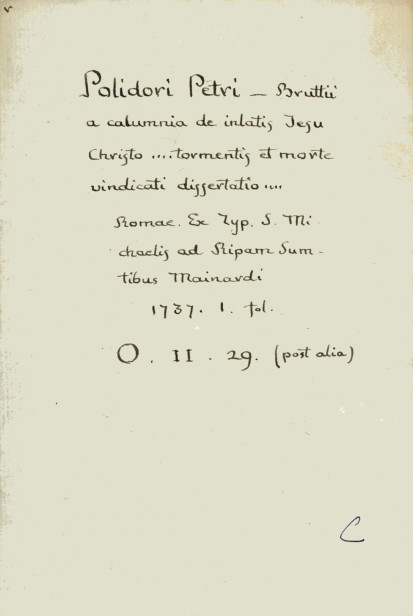 v
Polidori Petri — Bruttii
a calumnia de inlatis Jesu
Christo .... tormentis et morte
vindicati dissertatio ....
Romae. Ex Typ. S. Mi
chaelis ad Ripam Sum-
tibus Mainardi
1737. 1. fol.
O. II. 29. (post alia)
C